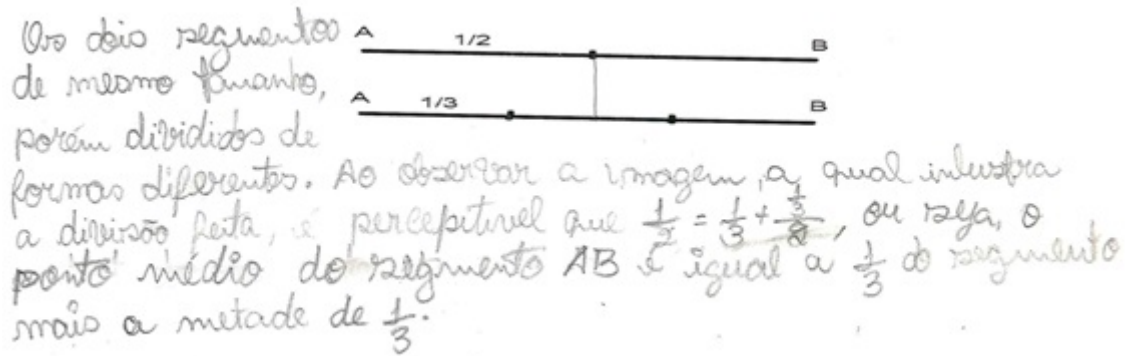 Os dois segmentos
A 1/2 B
de mesmo tamanho,
A 1/3 B
porém divididos de
formas diferentes. Ao observar a imagem, a qual inlustra
a divisão feita, é percepitivel que 1/2 = 1/3 + (1/3)/2, ou seja, o
ponto médio do segmento AB é igual a 1/3 do segmento
mais a metade de 1/3.